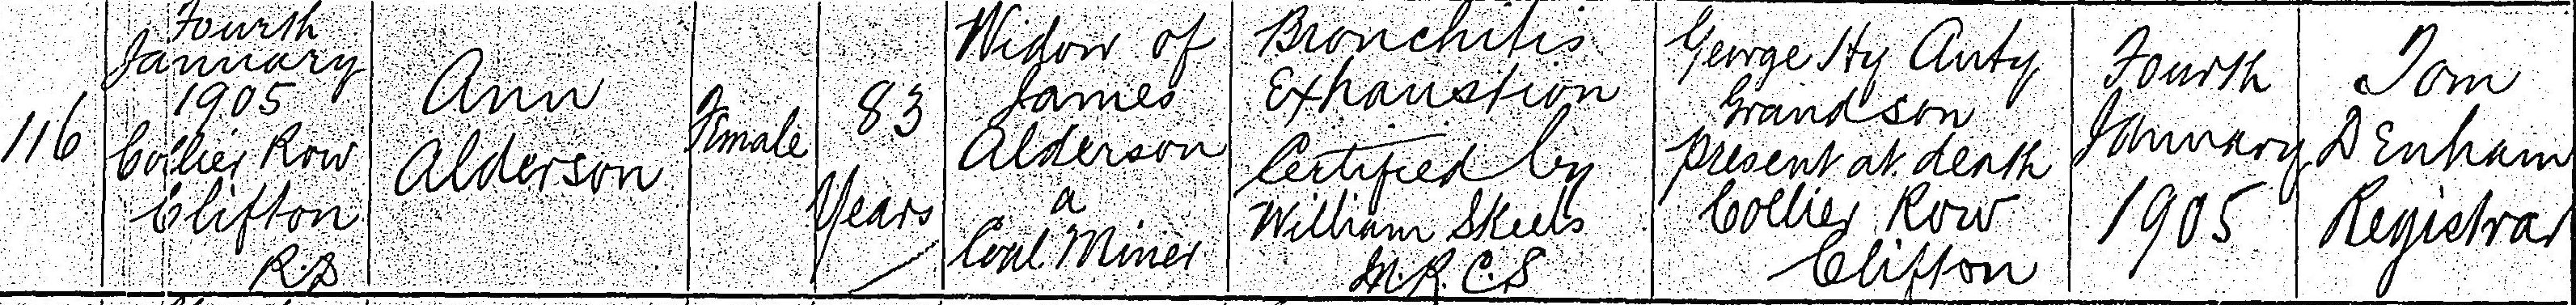 116
Fourth
January
1905
Collier Row
Clifton
R.D
Ann
Alderson
Female
83
Years
Widow of
James
Alderson
a
Coal Miner
Bronchitis
Exhaustion
Certified by
William Skeels
M.R.C.S
George Hy Auty
Grandson
present at death
Collier Row
Clifton
Fourth
January
1905
Tom
Denham
Registrar